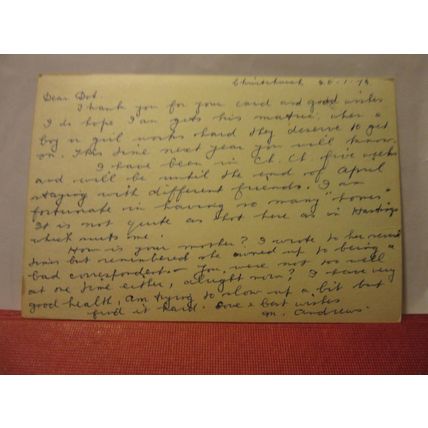 Christchurch 20-1-73
Dear Dot.
Thank you for your card and good wishes
I do hope Ian gets his matric, when a
boy or girl works hard they deserve to get
on. This time next year you will know.
I have been in Ch. Ch. five weeks
and will be until the end of April
staying with different friends. I am
fortunate in having so many "homes"
It is not quite as hot here as in Hastings
which suits me.
How is your mother? I wrote to her
but remembered she owned up to being a
bad correspondent. You were not too well
at one time either, alright now? I have very
good health, am trying to slow up a bit but
find it hard. Love & best wishes
Andrews.